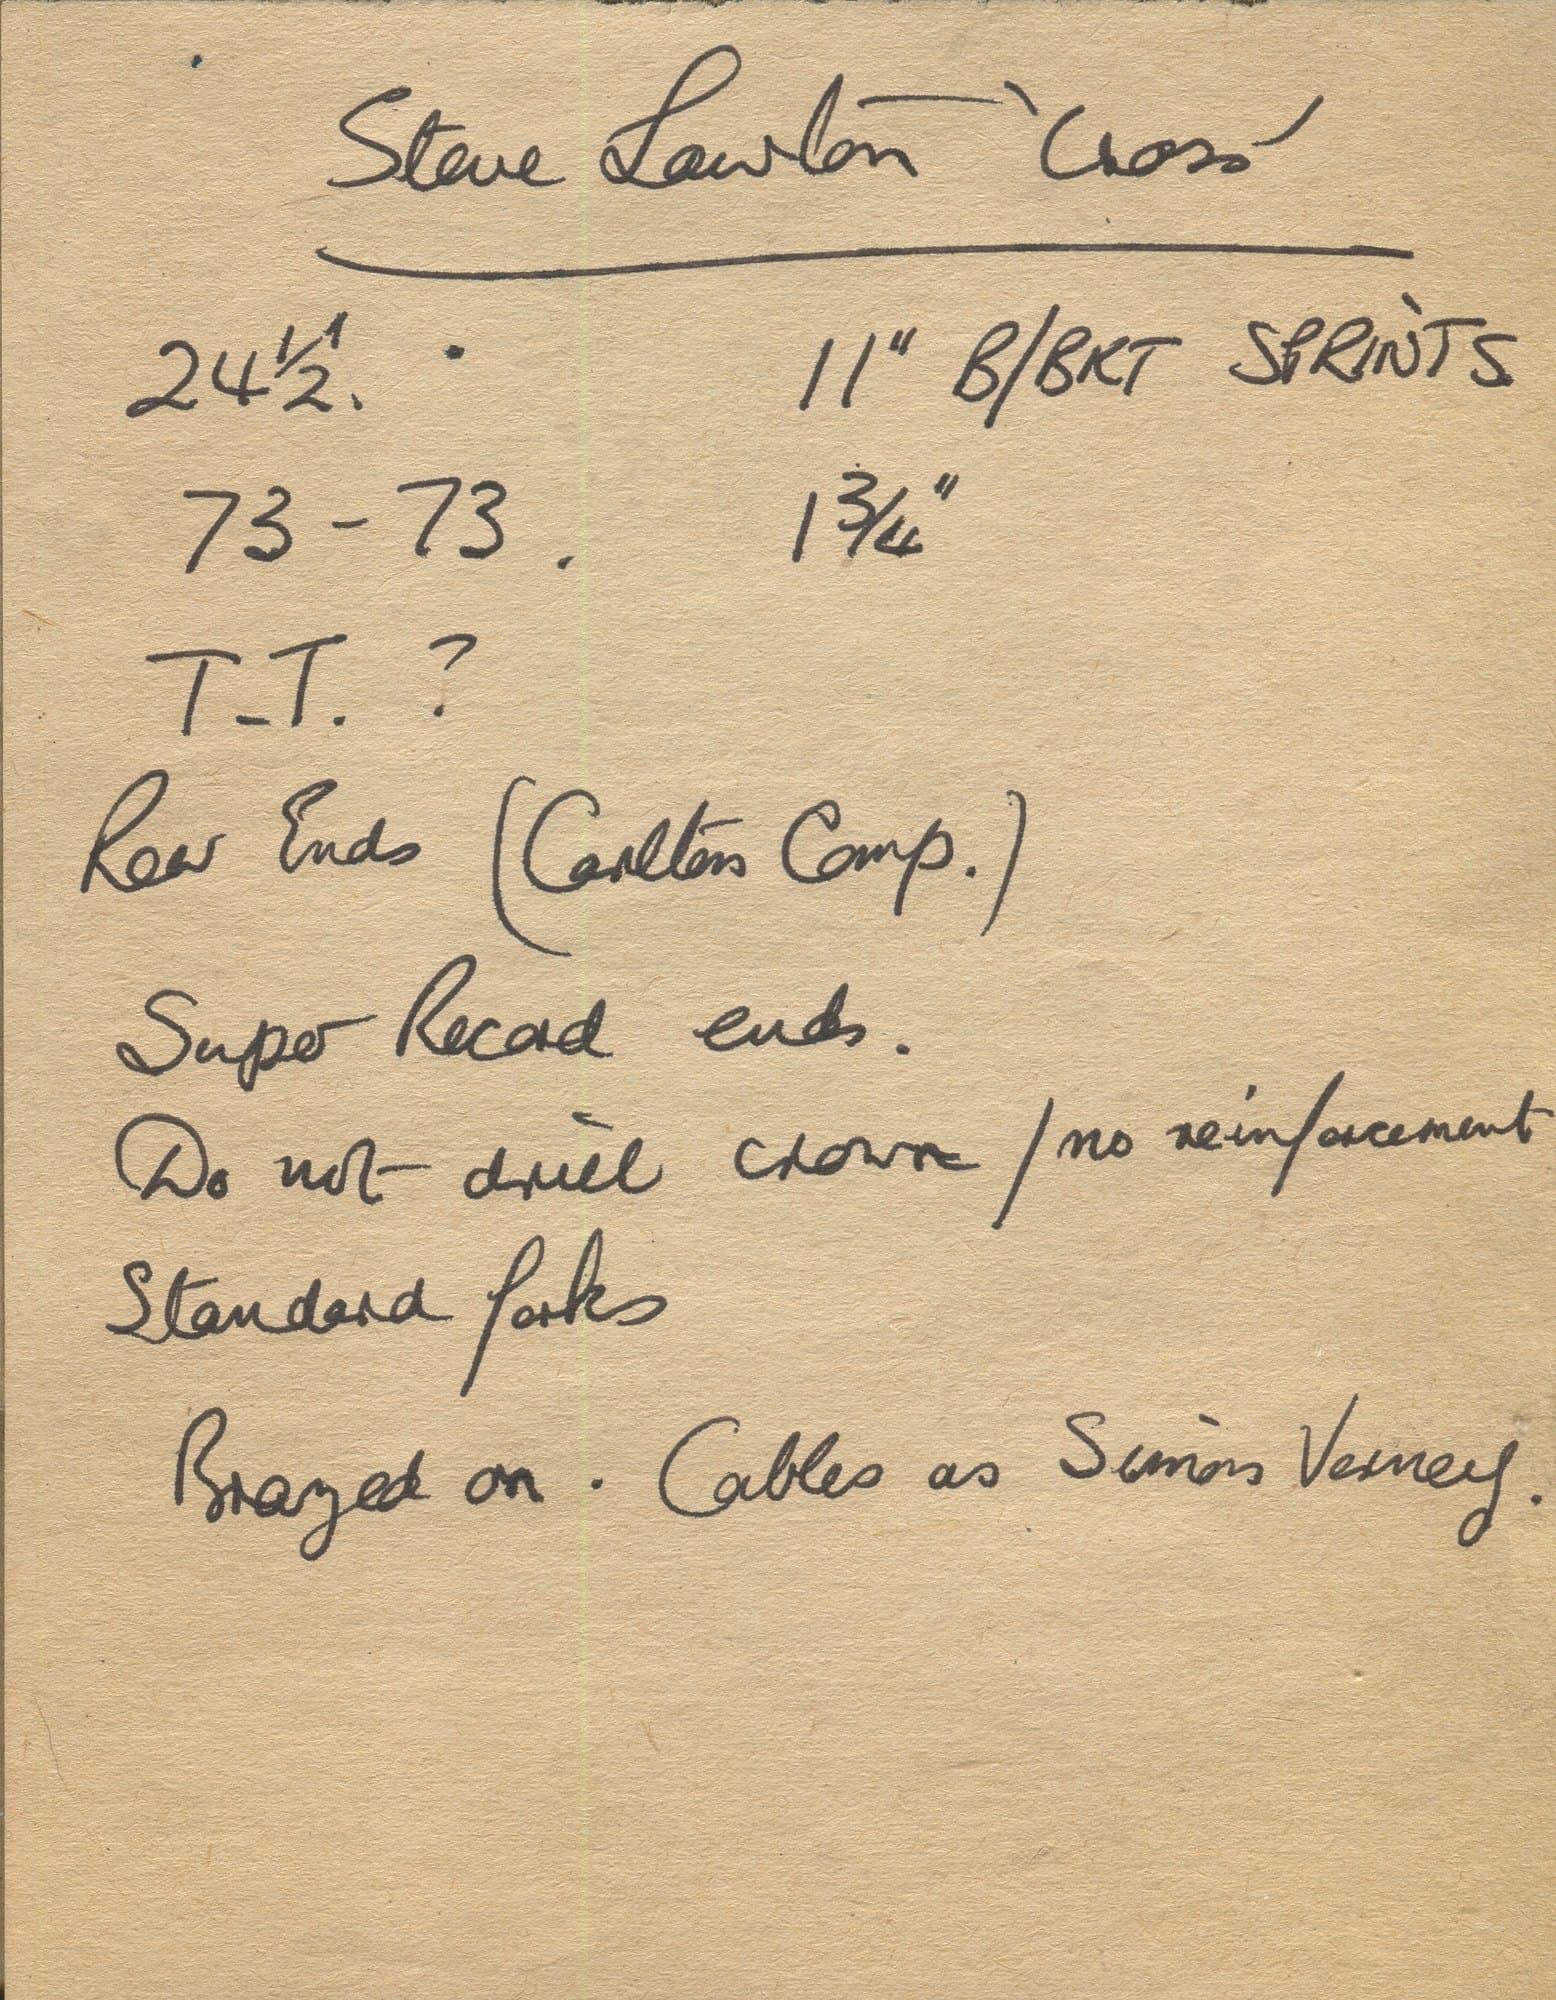 Steve Lawton 'Cross'
24 1/2. 11" B/BKT SPRINTS
73 - 73. 1 3/4"
T.T. ?
Rear Ends (Carltons Comp.)
Super Record ends.
Do not drill crown / no reinforcement
Standard forks
Brazed on. Cables as Simons Verney.